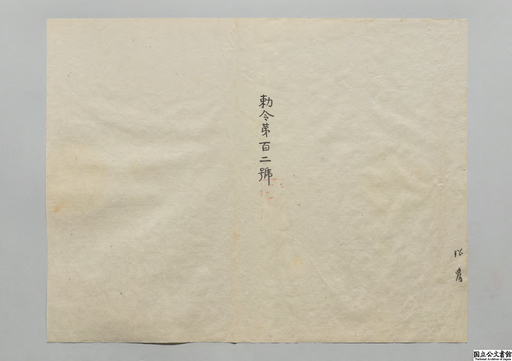 勅令第百二號
国立公文書館
National Archives of Japan